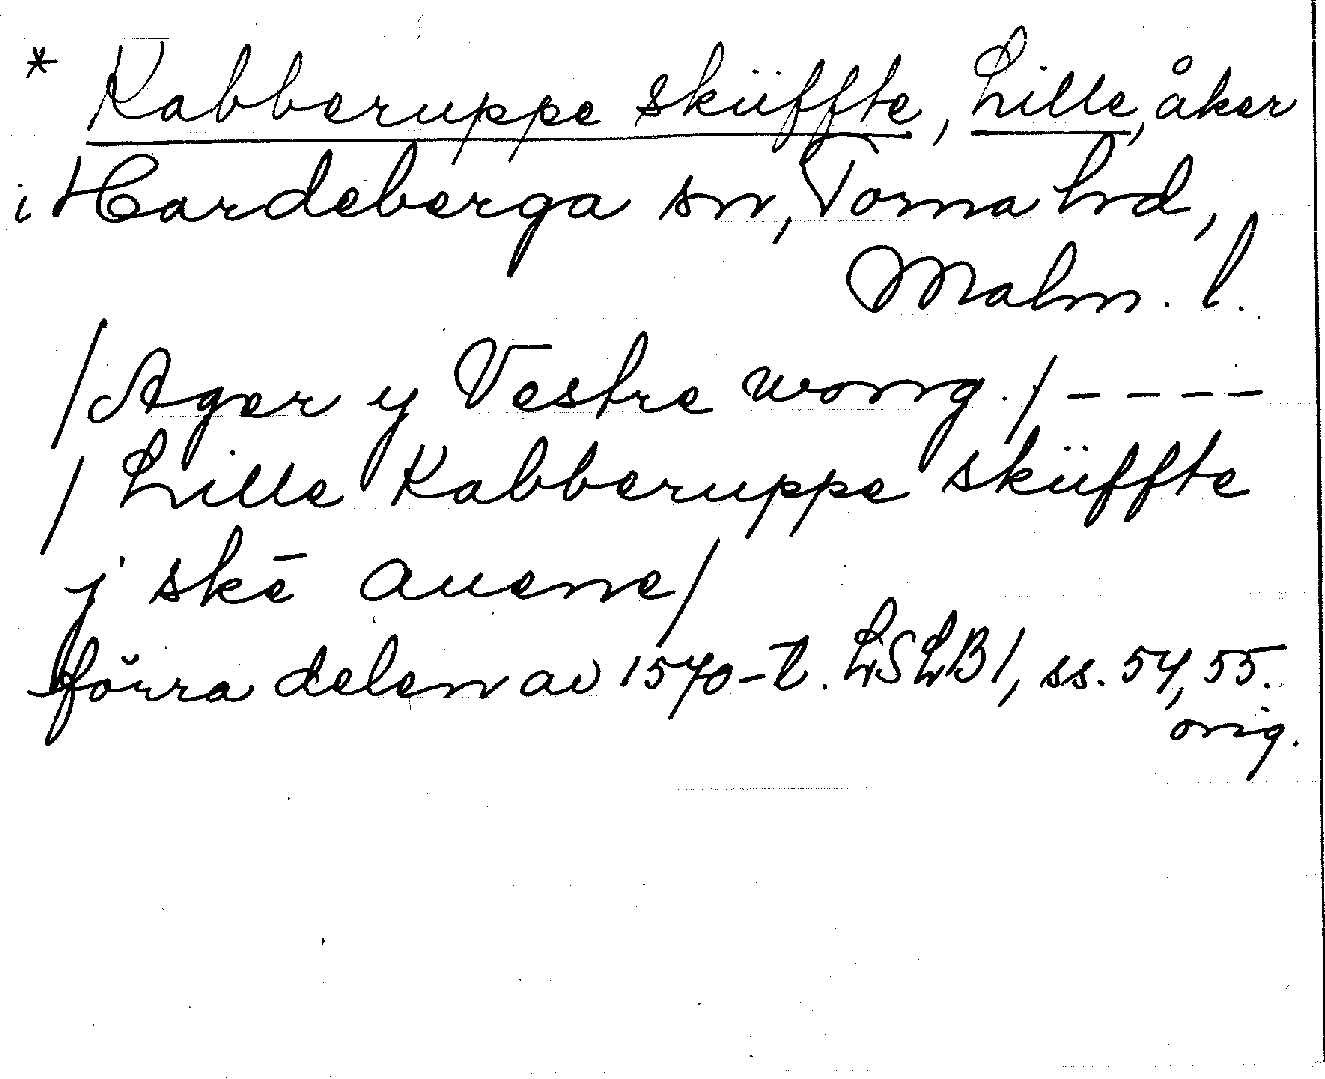 * Kabberuppe skiüffte, Lille, åker
i Hardeberga sn, Torna hrd,
Malm. l.
/Ager y Vestre wong./----
/Lille Kabberuppe skiüffte
j skē auene/
förra delen av 1570-t. LSLB1, ss. 54, 55.
orig.